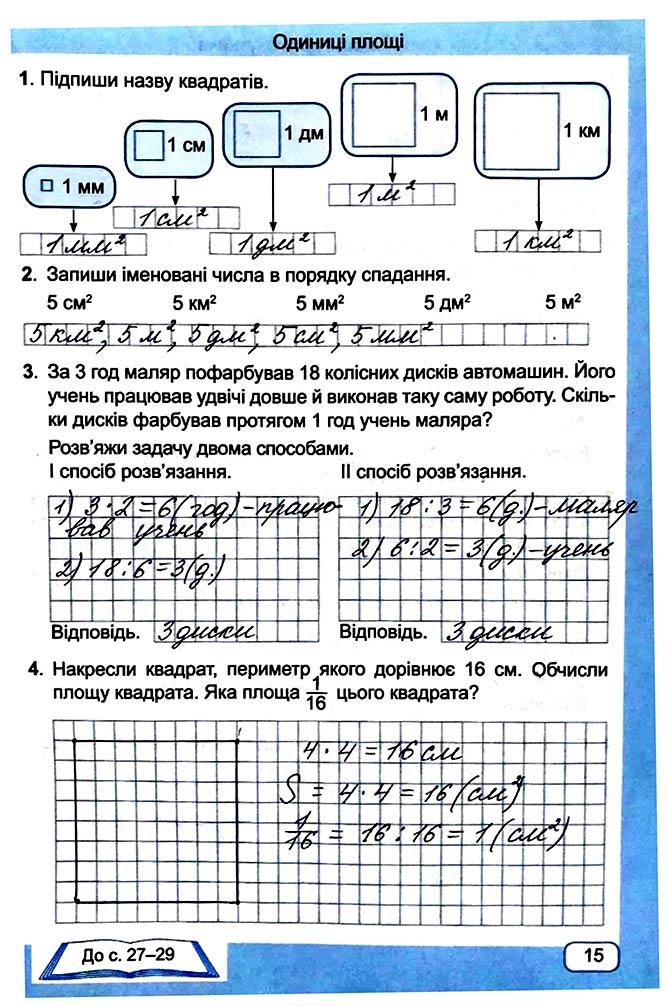 Одиниці площі
1. Підпиши назву квадратів.
1 мм
1 см
1 дм
1 м
1 км
1 мм²
1 см²
1 дм²
1 м²
1 км²
2. Запиши іменовані числа в порядку спадання.
5 см² 5 км² 5 мм² 5 дм² 5 м²
5 км², 5 м², 5 дм², 5 см², 5 мм²
3. За 3 год маляр пофарбував 18 колісних дисків автомашин. Його
учень працював удвічі довше й виконав таку саму роботу. Скіль-
ки дисків фарбував протягом 1 год учень маляра?
Розв’яжи задачу двома способами.
І спосіб розв’язання.
1) 3·2=6(год)-працю-
вав учень
2) 18:6=3(д.)
Відповідь. 3 диски
ІІ спосіб розв’язання.
1) 18:3=6(д.)-маляр
2) 6:2=3(д.)-учень
Відповідь. 3 диски
4. Накресли квадрат, периметр якого дорівнює 16 см. Обчисли
площу квадрата. Яка площа 1/16 цього квадрата?
4·4=16 см
S = 4·4=16(см²)
1/16 = 16:16=1(см²)
До с. 27–29
15